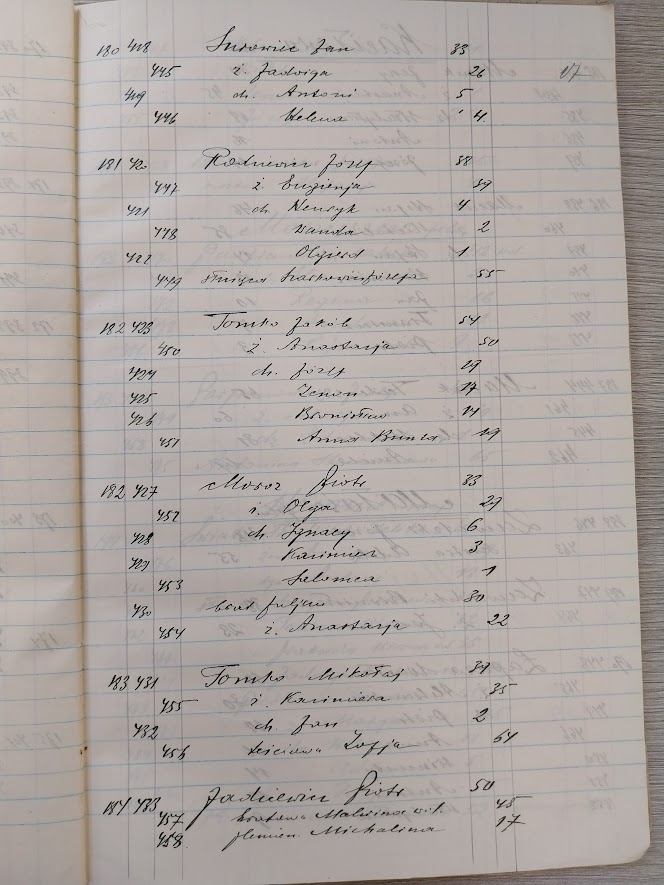 180 418 Surowiec Jan 33
445 ż. Jadwiga 26 17
419 ch. Antoni 5
446 Helena 4
181 420 Józef 38
447 ż. Eugienja 39
421 ch. Henryk 4
448 Wanda 2
422 Olgierd 1
449 55
182 423 Tomko Jakób 54
450 ż. Anastazja 50
424 ch. Józef 29
425 Zenon 17
426 Bronisław 14
451 Anna 19
182 427 Moroz Piotr 33
452 ż. Olga 27
428 ch. Ignacy 6
429 Kazimierz 3
453 Salomea 1
430 brat Juljan 30
454 ż. Anastazja 22
183 431 Tomko Mikołaj 37
455 ż. Kazimiera 35
432 ch. Jan 2
456 teściowa Zofja 64
184 433 Piotr 50
457 bratowa Malwina 45
458 Michalina 17